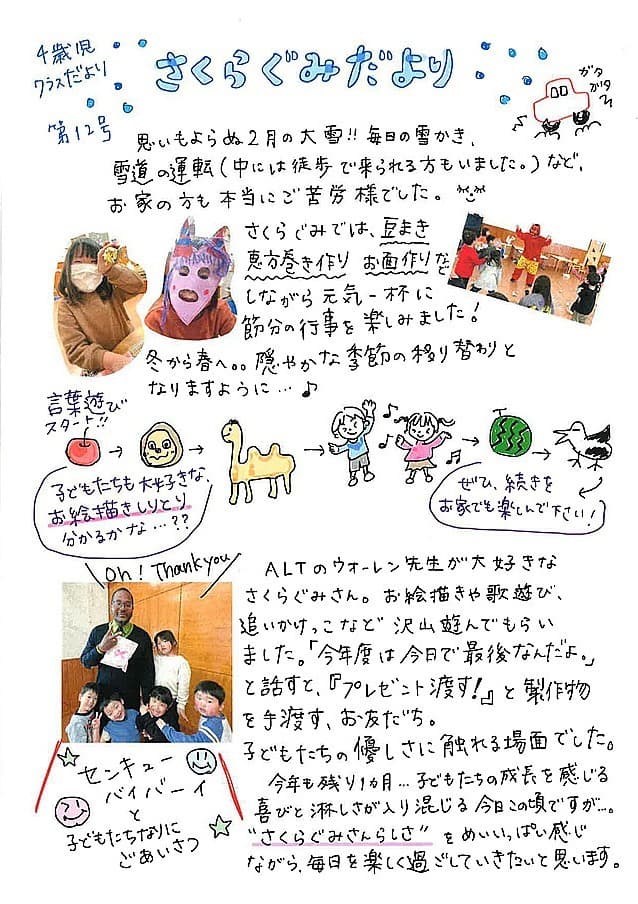 4歳児
クラスだより
第12号
さくらぐみだより
ガタ
ガタ
思いもよらぬ2月の大雪!! 毎日の雪かき、
雪道の運転(中には徒歩で来られる方もいました。)など、
お家の方も本当にご苦労様でした。
さくらぐみでは、豆まき
恵方巻き作り お面作りなど
しながら元気一杯に
節分の行事を楽しみました!
冬から春へ。。穏やかな季節の移り替わりと
なりますように…♪
言葉遊び
スタート!!
子どもたちも大好きな、
お絵描きしりとり
分かるかな…??
ぜひ、続きを
お家でも楽しんで下さい!
Oh! Thank you
ALTのウォーレン先生が大好きな
さくらぐみさん。お絵描きや歌遊び、
追いかけっこなど沢山遊んでもらい
ました。「今年度は今日で最後なんだよ。」
と話すと、『プレゼント渡す!』と製作物
を手渡す、お友だち。
子どもたちの優しさに触れる場面でした。
センキュー
バイバーイ
と
子どもたちなりに
ごあいさつ
今年も残り1カ月…子どもたちの成長を感じる
喜びと淋しさが入り混じる今日この頃ですが…。
"さくらぐみさんらしさ" をめいいっぱい感じ
ながら、毎日を楽しく過ごしていきたいと思います。